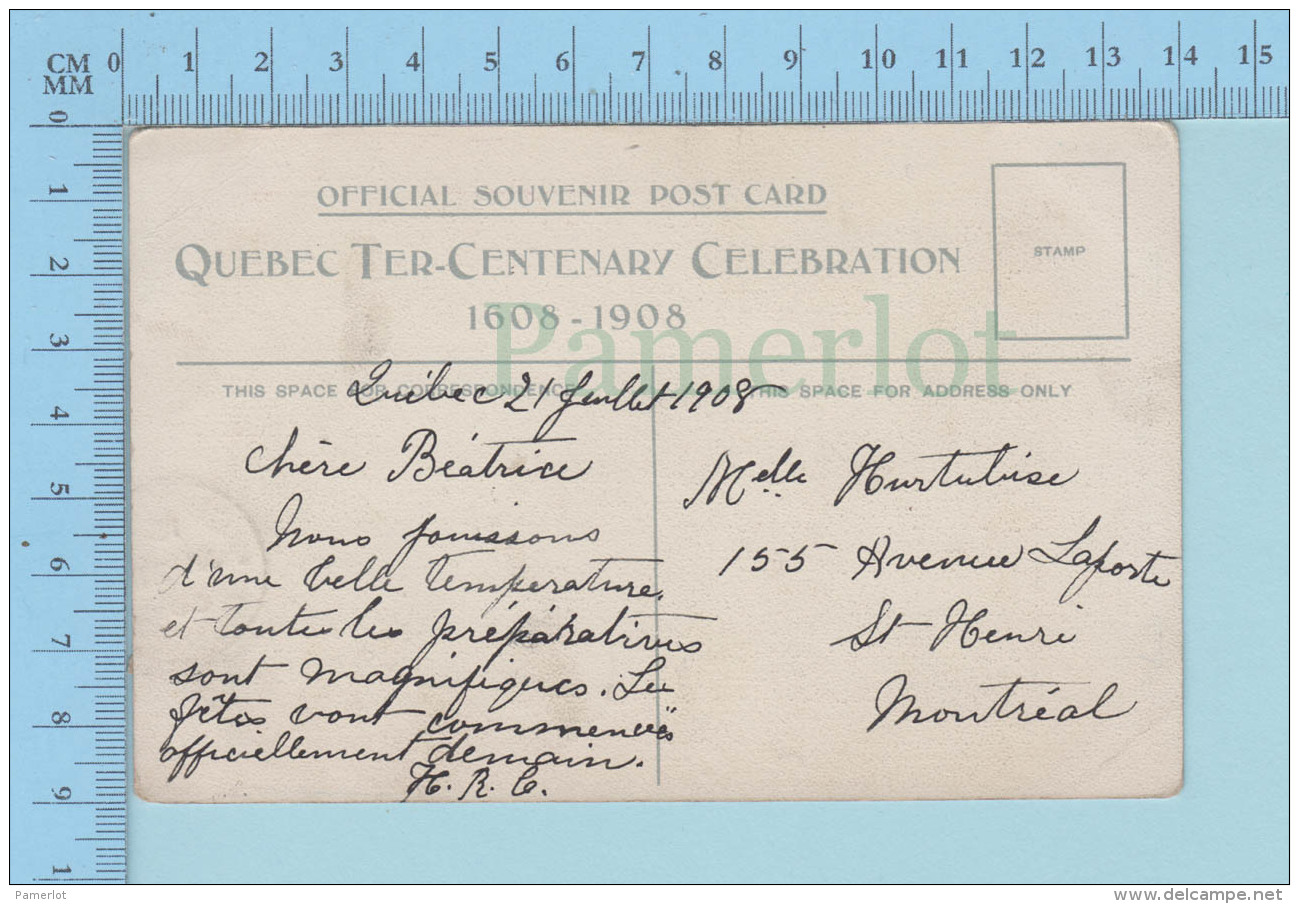 CM 0 1 2 3 4 5 6 7 8 9 10 11 12 13 14 15
MM
0
1
2
3
4
5
6
7
8
9
1
OFFICIAL SOUVENIR POST CARD
QUEBEC TER-CENTENARY CELEBRATION
1608-1908
STAMP
Pamerlot
THIS SPACE FOR CORRESPONDENCE
THIS SPACE FOR ADDRESS ONLY
Québec 21 Juillet 1908
Chère Béatrice
Nous jouissons
d'une belle temperature.
et toutes les préparatives
sont magnifiques. Les
fêtes vont commencées
officiellement demain.
H. R. C.
Melle Hurtubise
155 Avenue Laporte
St Henri
Montréal
Pamerlot
www.delcampe.net